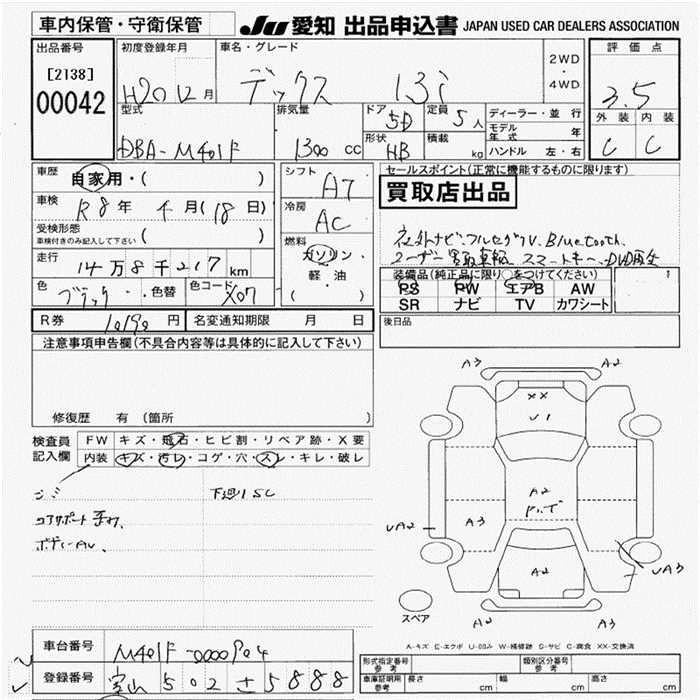 車内保管・守衛保管
JU 愛知 出品申込書 JAPAN USED CAR DEALERS ASSOCIATION
出品番号
[2138]
00042
初度登録年月
H20年12月
車名・グレード
デックス 1.3i
2WD
・
4WD
評価点
3.5
外装 内装
C C
型式
DBA-M401F
排気量
1300 cc
ドア
5D
定員
5人
形状
HB
積載
kg
ディーラー・並行
モデル年式 年
ハンドル 左・右
車歴
自家用・( )
車検
R8年 4月(18日)
受検形態
車検付きのみ記入して下さい
( )
走行
14万8千217km
色
ブラック
色替
色コード
X07
シフト
A7
冷房
AC
燃料
ガソリン・
軽・油
( )
セールスポイント(正常に機能するものに限ります)
買取店出品
社外ナビ.フルセグTV.Bluetooth.
ユーザー買取車輌 スマートキー.DVD再生
装備品(純正品に限り○をつけてください)
PS PW エアB AW
SR ナビ TV カワシート
後日品
R券 円
名変通知期限 月 日
注意事項申告欄(不具合内容等は具体的に記入して下さい)
修復歴 有(箇所 )
検査員
記入欄
FW キズ・飛石・ヒビ割・リペア跡・X要
内装 キズ・汚レ・コゲ・穴・スレ・キレ・破レ
下廻りSC
コアサポート
ボデーAU.
A3 A2
XX
U1
A2
A3
UA2
A2
UA3
A3 A2
スペア
A-キズ E-エクボ U-凹み W-補修跡 S-サビ C-腐食 XX-交換済
車台番号
登録番号
富山 502 さ 5888
形式指定番号
参考
類別区分番号
参考
車庫証明用
参考
長さ cm
幅 cm
高さ cm